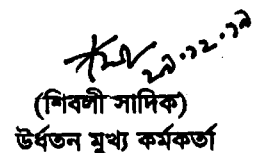 ২৯.১২.১৯
(শিবলী সাদিক)
উর্ধতন মুখ্য কর্মকর্তা